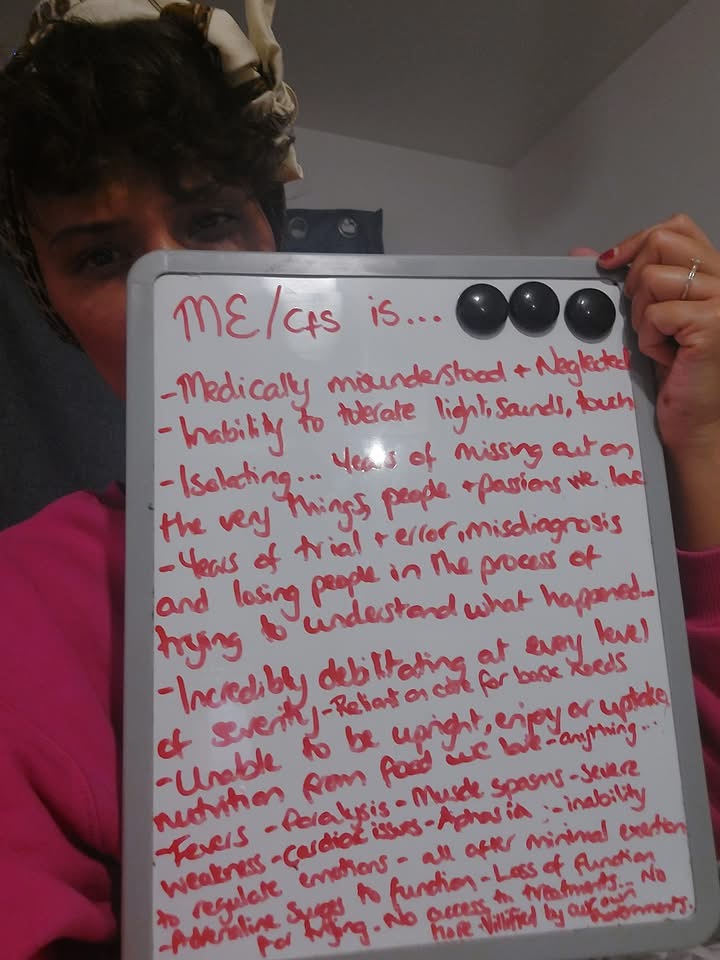 ME/cfs is...
-Medically misunderstood + Neglected
-Inability to tolerate light, Sounds, touch
-Isolating... Years of missing out on
the very things, people + passions we love
-Years of trial + error, misdiagnosis
and losing people in the process of
trying to understand what happened...
-Incredibly debilitating at every level
of severity -Reliant on care for basic needs
-Unable to be upright, enjoy or uptake
nutrition from food we love - anything...
-Fevers - Paralysis - Muscle spasms - Severe
weakness - Cardiac issues - Aphasia - inability
to regulate emotions - all after minimal exertion
-Adrenaline Surges to function - Loss of function
for trying - No access to treatments... No
more vilified by our own
Governments.